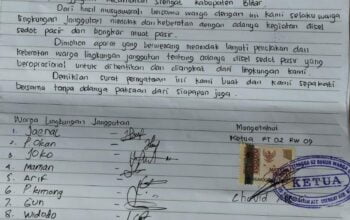 Kecamatan Srengat Kabupaten Blitar
Dari hasil musyawarah bersama warga dengan ini kami selaku warga
lingkungan Janggutan menolak dan keberatan dengan adanya kegiatan disel
sedot pasir dan bongkar muat pasir.
Dimohon aparat yang berwenang menindak lanjuti penolakan dan
keberatan warga lingkungan janggutan tentang adanya disel sedot pasir yang
beroprasional untuk dihentikan dan diangkat dari lingkungan kami
Demikian surat pernyataan ini kami buat dan kami sepakati
bersama tanpa adanya paksaan dari siapapun juga.
Warga Lingkungan Janggutan
Mengetahui
Ketua RT 02 RW 09
1. Jaenal
2. Pokan
3. Joko
4. Maman
5. Arif
6. P. kmong
7. Gun
8. Widodo
KETUA